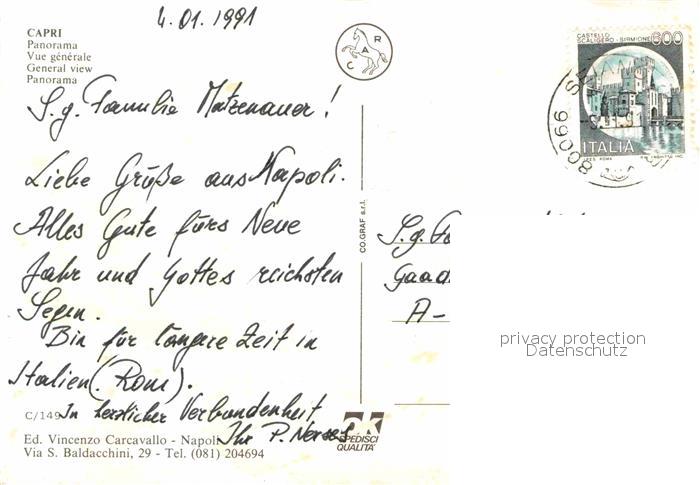 4.01.1991
CAPRI
Panorama
Vue générale
General view
Panorama
C A R
CASTELLO
SCALIGERO - SIRMIONE
600
ITALIA
80066
S.g. Familie Matzenauer!
Liebe Grüße aus Napoli.
Alles Gute fürs Neue
Jahr und Gottes reichsten
Segen.
Bin für längere Zeit in
Italien (Rom).
In herzlicher Verbundenheit
Ihr P. Nerses
CO.GRAF s.r.l.
S.g.
A-
privacy protection
Datenschutz
C/149
Ed. Vincenzo Carcavallo - Napoli
Via S. Baldacchini, 29 - Tel. (081) 204694
ok
SPEDISCI
QUALITA'